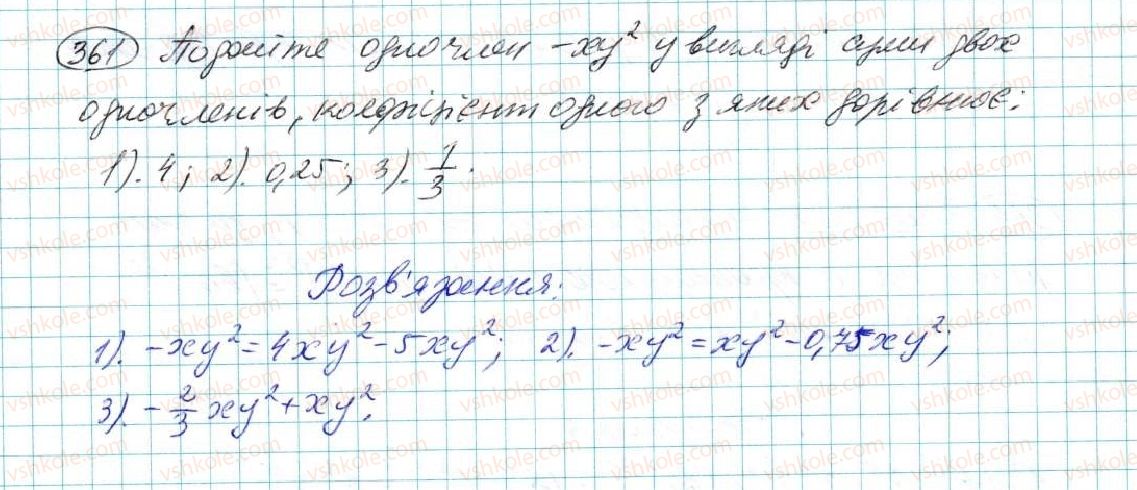 361 Подайте одночлен -xy² у вигляді суми двох
одночленів, коефіцієнт одного з яких дорівнює:
1). 4; 2). 0,25; 3). 1/3.
Розв'язання:
1). -xy² = 4xy² - 5xy²; 2). -xy² = xy² - 0,75xy²;
3). -2/3 xy² + xy².